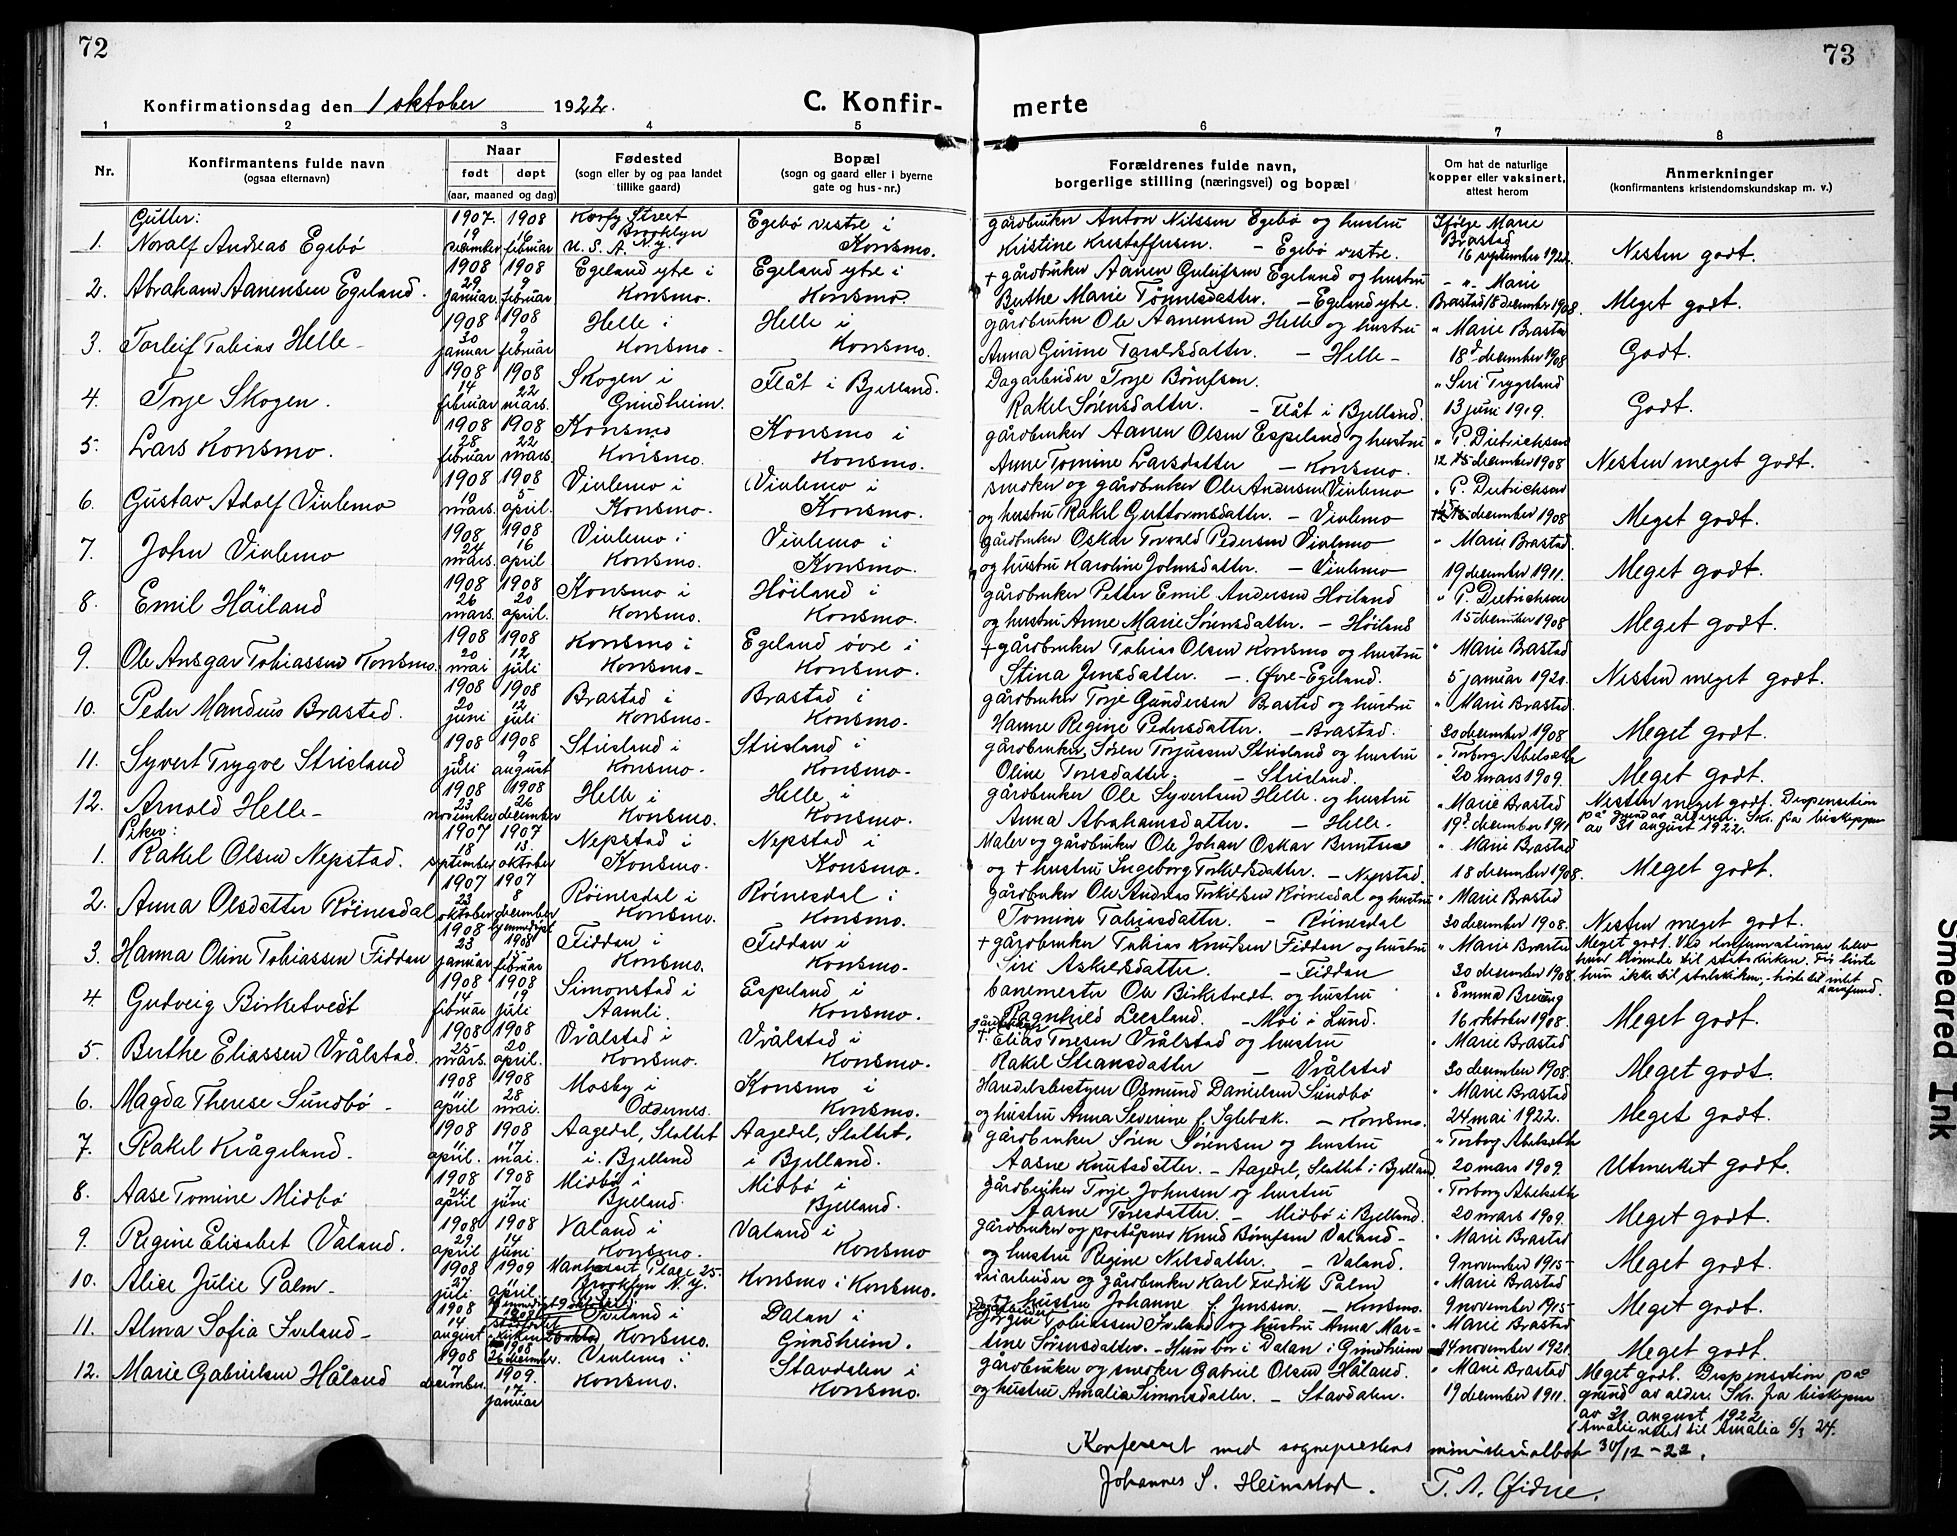 72
73
Konfirmationsdag den 1 oktober 1922.
C. Konfir-
merte
1 2 3 4 5 6 7 8
Nr.
Konfirmantens fulde navn
(ogsaa efternavn)
Naar
født døpt
(aar, maaned og dag)
Fødested
(sogn eller by og paa landet
tillike gaard)
Bopæl
(sogn og gaard eller i byerne
gate og hus-nr.)
Forældrenes fulde navn,
borgerlige stilling (næringsvei) og bopæl
Om hat de naturlige
kopper eller vaksinert,
attest herom
Anmerkninger
(konfirmantens kristendomskundskap m. v.)
Gutter:
1. Noralf Andreas Egebö 1907 19 december 1908 16 februar Street Brooklyn U.S.A. N.Y. Egebö vestre i Konsmo.
gårdbruker Anton Nilssen Egebö og hustru Kristine Kristoffersen. – Egebö vestre. Ifölge Marie Brastad 16 september 1922. Nesten godt.
2. Abraham Aanensen Egeland. 1908 29 januar. 1908 9 februar Egeland ytre i Konsmo. Egeland ytre i Konsmo.
+ gårdbruker Aanen Guleifsen Egeland og hustru Berthe Marie Tönnesdatter. – Egeland ytre. – " – Marie Brastad 18 december 1908. Meget godt.
3. Torleif Tobias Helle – 1908 30 januar 1908 9 februar Helle i Konsmo – Helle i Konsmo.
gårdbruker Ole Aanensen Helle og hustru Anna Gurine Taraldsdatter. – Helle – " Marie Brastad 18 december 1908 Godt.
4. Torje Skogen. 1908 14 februar 1908 22 mars. Skogen i Grindheim. Flåt i Bjelland.
Dagarbeider Torje Börufsen. Rakel Sörensdatter. – Flåt i Bjelland. " Siri Trygsland 13 juni 1919. Godt.
5. Lars Konsmo. 1908 28 februar 1908 22 mars. Konsmo i Konsmo. Konsmo i Konsmo.
gårdbruker Aanen Olsen Espeland og hustru Anne Tomine Larsdatter – Konsmo. " P. Dietrichson 15 december 1908 Nesten meget godt.
6. Gustav Adolf Vivlemo 1908 10 mars. 1908 5 april. Vivlemo i Konsmo. Vivlemo i Konsmo.
snedker og gårdbruker Ole Andersen Vivlemo og hustru Rakel Guttormsdatter. – Vivlemo " P. Dietrichson december 1908 Meget godt.
7. John Vivlemo 1908 24 mars. 1908 16 april Vivlemo i Konsmo. Vivlemo i Konsmo.
gårdbruker Oskar Torvald Pedersen Vivlemo og hustru Karoline Johnsdatter. – Vivlemo " Marie Brastad. 19 december 1911. Meget godt.
8. Emil Höiland 1908 26 mars. 1908 20 april. Konsmo i Konsmo. Höiland i Konsmo.
gårdbruker Petter Emil Andersen Höiland og hustru Anne Marie Sörensdatter. – Höiland " P. Dietrichson 15 december 1908 Meget godt.
9. Ole Ansgar Tobiassen Konsmo. 1908 20 mai 1908 12 juli Konsmo i Konsmo – Egeland övre i Konsmo.
+ gårdbruker Tobias Olsen Konsmo og hustru Stina Jensdatter. – Övre-Egeland. " Marie Brastad 5 januar 1920. Nesten meget godt.
10. Peder Mandius Brastad. 1908 20 juni 1908 12 juli Brastad i Konsmo – Brastad i Konsmo.
gårdbruker Torje Gundersen Brastad og hustru Hanne Regine Pedersdatter. – Brastad. " Marie Brastad. 30 december 1908 Meget godt.
11. Syvert Trygve Strisland 1908 8 juli 1908 9 august Strisland i Konsmo. Strisland i Konsmo –
gårdbruker Sören Torjussen Strisland og hustru Oline Toresdatter. – Strisland. " Torborg Abelseth 20 mars 1909. Meget godt.
12. Arnold Helle – 1908 23 november 1908 26 december Helle i Konsmo. Helle i Konsmo.
gårdbruker Ole Syvertsen Helle og hustru Anna Abrahamsdatter. – Helle. " Marie Brastad 19 december 1911 Nesten meget godt. Dispensation på grund av alderen. Skr. fra biskopen av 31 august 1922.
Piker:
1. Rakel Olsen Nepstad. 1907 18 september 1907 13 oktober Nepstad i Konsmo. Nepstad i Konsmo.
Maler og gårdbruker Ole Johan Oskar Berntsen og + hustru Ingeborg Torkelsdatter. – Nepstad. " Marie Brastad 18 december 1908. Meget godt.
2. Anna Olsdatter Röinesdal 1907 23 oktober 1907 8 december Röinesdal i Konsmo. Röinesdal i Konsmo.
gårdbruker Ole Andreas Terkelsen Röinesdal og hustru Tomine Tobiasdatter. – Röinesdal " Marie Brastad 30 december 1908. Nesten meget godt.
3. Hanna Oline Tobiassen Fiddan 1908 23 januar hjemmedöpt 1908 5 februar Fiddan i Konsmo. Fiddan i Konsmo.
+ gårdbruker Tobias Knudsen Fiddan og hustru Siri Askelsdatter. – Fiddan " Marie Brastad 30 december 1908. Meget godt. Ved konfirmationen blev hun til statskirken. För hörte hun ikke til statskirken, – hörte til intet samfund.
4. Gudveig Birketvedt 1908 14 februar 1908 19 juli Simonstad i Aamli. Espeland i Konsmo.
banemester Ole Birketvedt og hustru Ragnhild Leesland. – Moi i Lund. " Emma Breving 16 oktober 1908. Meget godt.
5. Berthe Eliassen Vrålstad. 1908 25 mars. 1908 20 april. Vrålstad i Konsmo. Vrålstad i Konsmo.
gårdbruker + Elias Toresen Vrålstad og hustru Rakel Stiansdatter – Vrålstad " Marie Brastad 30 december 1908. Meget godt.
6. Magda Therese Sundbö – 1908 11 april 1908 28 mai. Mosby i Oddernes. Konsmo i Konsmo.
Handelsbestyrer Osmund Danielsen Sundbö og hustru Anna Severine f. Iglebæk. – Konsmo. " Marie Brastad 24 mai 1922. Meget godt.
7. Rakel Krågeland. 1908 11 april. 1908 17 mai. Aagedal, Slattet i Bjelland Aagedal, Slattet, i Bjelland.
gårdbruker Sören Sörensen og hustru Aasne Knutsdatter. – Aagedal, Slattet i Bjelland. " Torborg Abelseth 20 mars 1909. Utmerket godt.
8. Aase Tomine Midbö 1908 24 april 1908 7 juni Midbö i Bjelland. Midbö i Bjelland.
gårdbruker Torje Johnsen og hustru Aasne Toresdatter. – Midbö i Bjelland. " Torborg Abelseth 20 mars 1909. Meget godt.
9. Regine Elisabet Valand. 1908 29 april 1908 14 juni Valand i Konsmo. Valand i Konsmo
gårdbruker og poståpner Knud Börufsen Valand – og hustru Regine Nilsdatter. – Valand. " Marie Brastad 9 november 1915 – Meget godt.
10. Alice Julie Palm – 1908 27 juli 1909 11 april. Manhasset Place 25. Brooklyn N.Y. Konsmo i Konsmo.
veiarbeider og gårdbruker Karl Fredrik Palm hustru Johanne f. Jenssen. – Konsmo. " Marie Brastad 9 november 1915 – Meget godt.
11. Alma Sofia Sveland – 1908 14 august hjemmedöpt 1908 Sveland i Konsmo. Dalan i Grindheim.
Jörgen Tobiassen Sveland og hustru Anna Martine Sörensdatter. – Hun bor i Dalan i Grindheim " Marie Brastad 14 november 1921 Meget godt.
12. Marie Gabrielsen Håland 1908 7 december. 26 december. 1909. 17 januar Vivlemo i Konsmo. Stavdalen i Konsmo.
gårdbruker og snedker Gabriel Olsen Håland. og hustru Amalia Simonsdatter. – Stavdalen. " Marie Brastad 19 december 1911. Meget godt. Dispensation på grund av alder. Skr. fra biskopen av 31 august 1922
(Amalie rettet til Amalia 6/3 24.
Konfereret med sogneprestens ministerialbok 30/12 – 22.
Johannes S. Heimstad. T. A. Eidne.
Smeared Ink